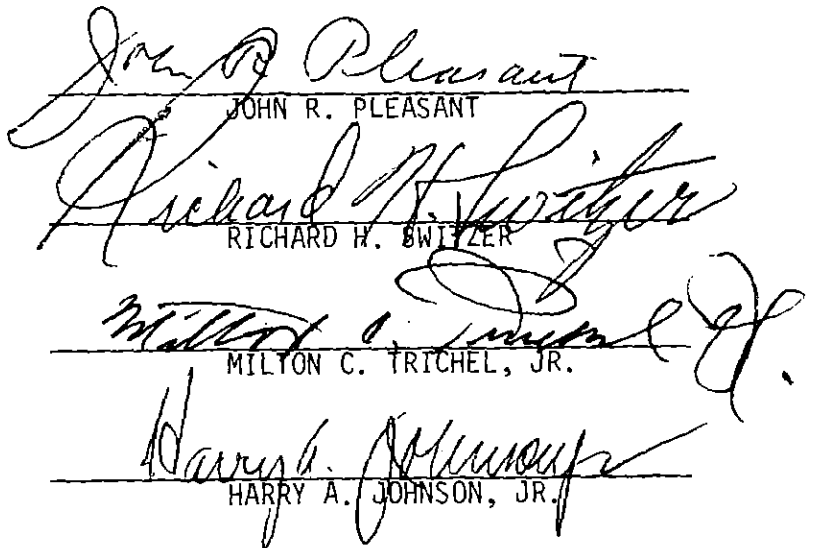 John R Pleasant
JOHN R. PLEASANT
Richard H. Switzer
RICHARD H. SWITZER
Milton C. Trichel Jr.
MILTON C. TRICHEL, JR.
Harry A. Johnson Jr
HARRY A. JOHNSON, JR.